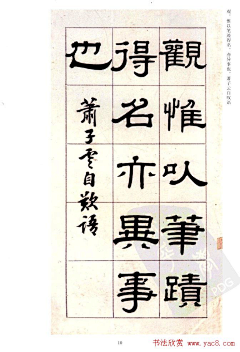 觀惟以筆蹟
得名亦異事
也
蕭子雲自歎語
18
书法欣赏
www.yac8.com